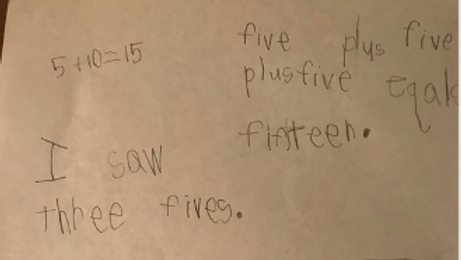 5+10=15
five plus five
plusfive eqals
finteen.
I saw
three fives.